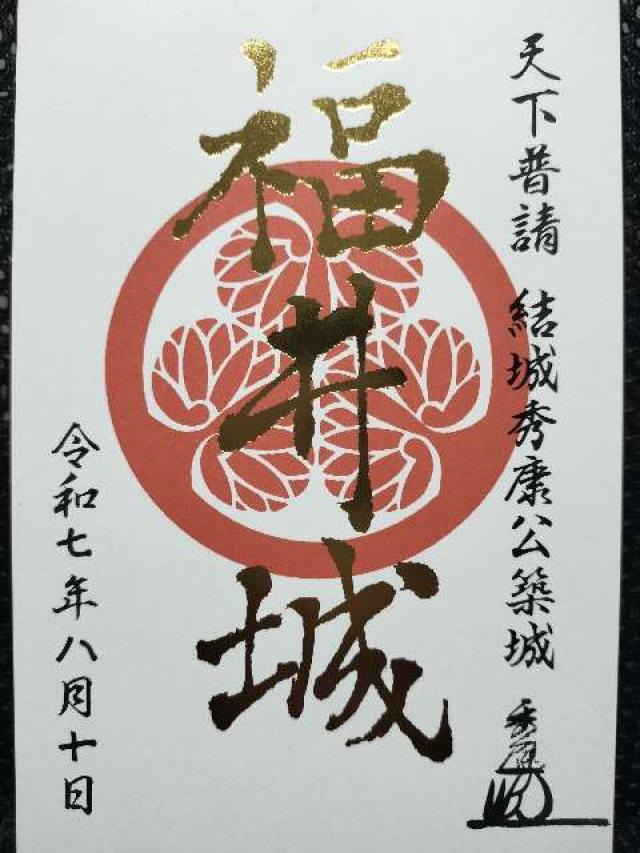 天下普請 結城秀康公築城
秀康
福井城
令和七年八月十日